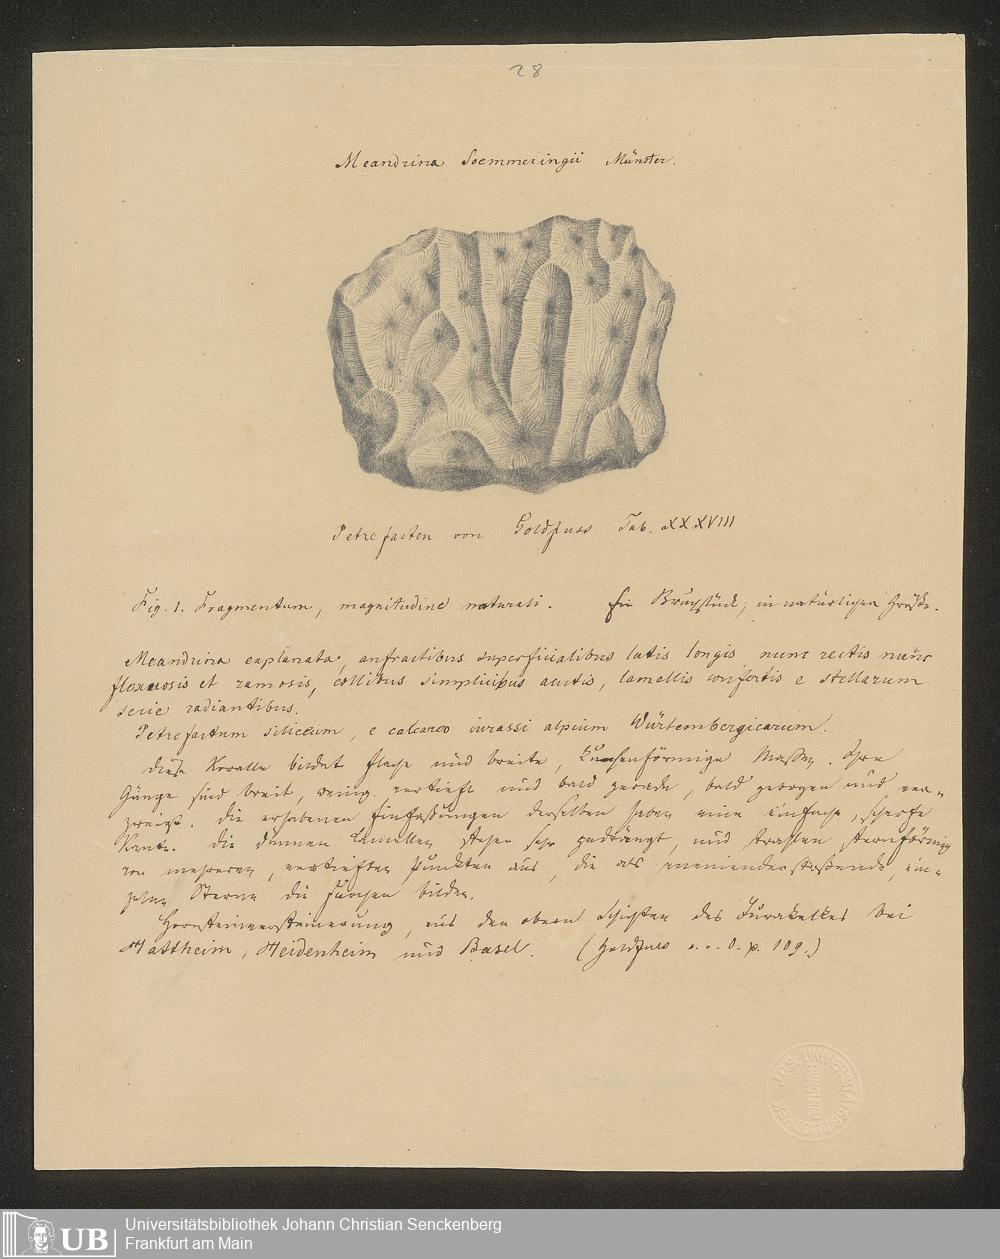 28
Meandrina Soemmeringii Münster.
Petrefacten von Goldfuss Tab. XXXVIII
Fig. 1. Fragmentum, magnitudine naturali. Ein Bruchstück, in natürlicher Größe.
Meandrina explanata, anfractibus superficialibus latis longis nunc rectis nunc
flexuosis et ramosis, collibus simplicibus acutis, lamellis confertis e stellarum
serie radiantibus.
Petrefactum siliceum, e calcareo iurassi alpium Würtembergicarum.
Diese Koralle bildet flache und breite, kuchenförmige Massen. Ihre
Gänge sind breit, wenig vertieft und bald gerade, bald gebogen und ver-
zweigt. Die erhabenen Einfassungen derselben haben eine einfache, scharfe
Kante. Die dünnen Lamellen stehen sehr gedrängt, und strahlen sternförmig
von mehreren, vertieften Punkten aus, die als aneinanderstoßende, ein-
zelne Sterne die Furchen bilden.
Hornsteinversteinerung, aus den obern Schichten des Jurakalkes bei
Nattheim, Heidenheim und Basel. (Goldfuss a. a. O. p. 109.)
UNIVERSITÄTSBIBLIOTHEK J.C.S.
UB
Universitätsbibliothek Johann Christian Senckenberg
Frankfurt am Main